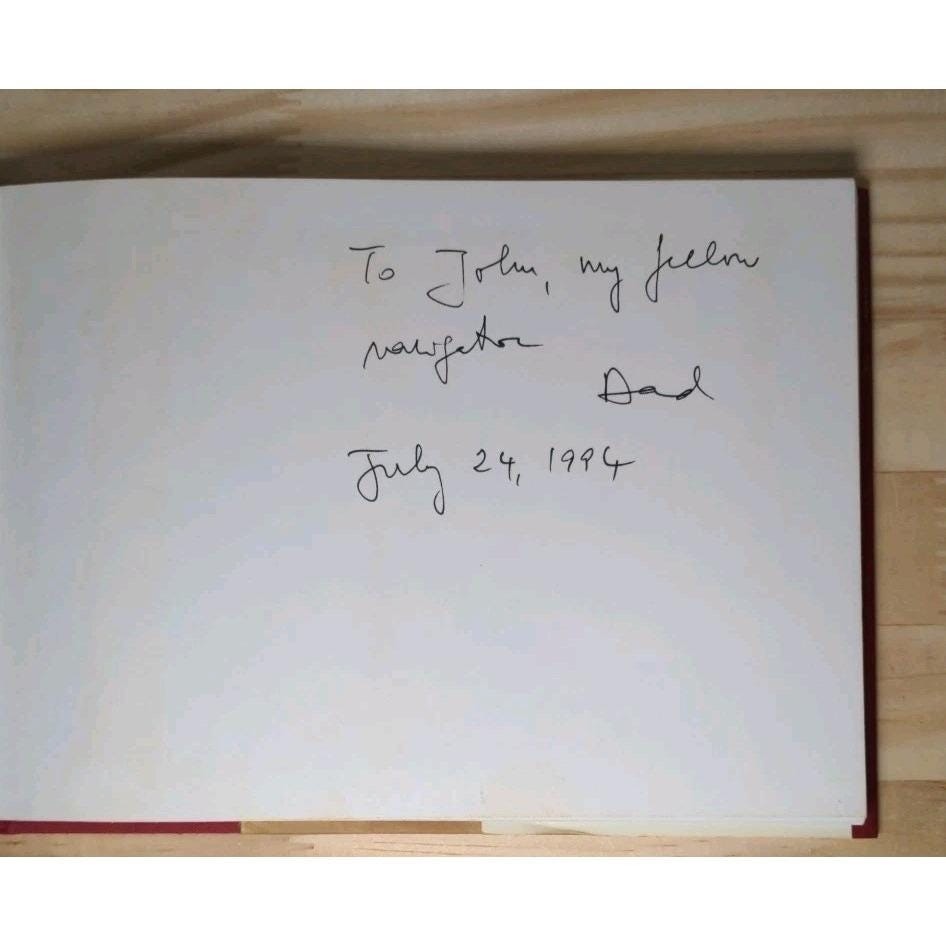 To John, my fellow
navigator
Dad
July 24, 1994